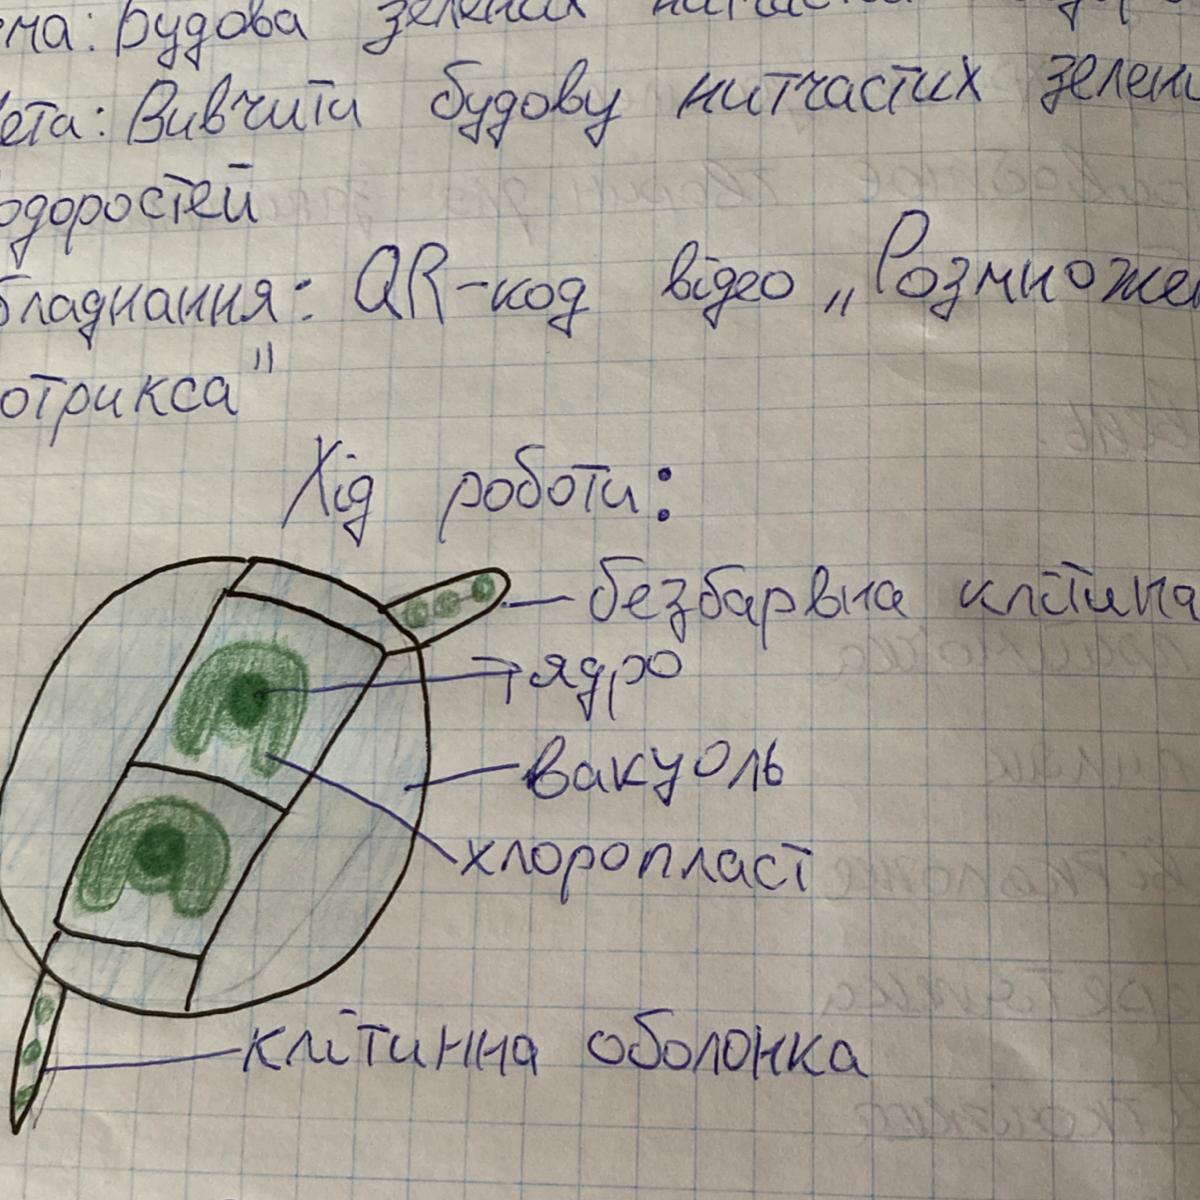 ма: Будова зелених нитчастих
ета: Вивчити будову нитчастих зелени
одоростей
бладнання: QR-код відео „Розмноже
отрикса"
Хід роботи:
безбарвна клітина
ядро
вакуоль
хлоропласт
клітинна оболонка